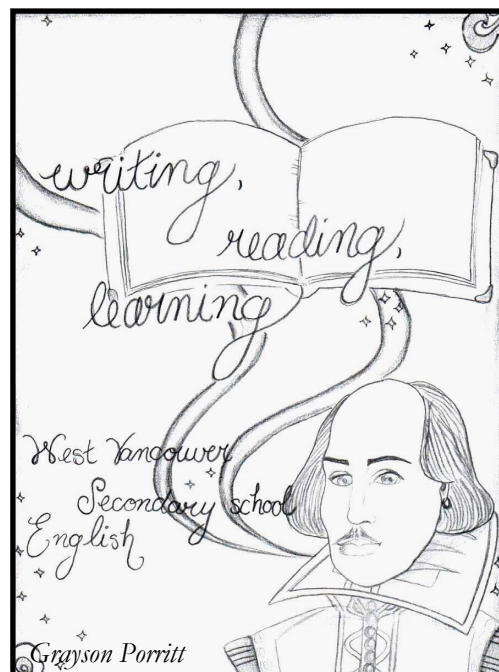 writing,
reading,
learning
West Vancouver
Secondary school
English
Grayson Porritt